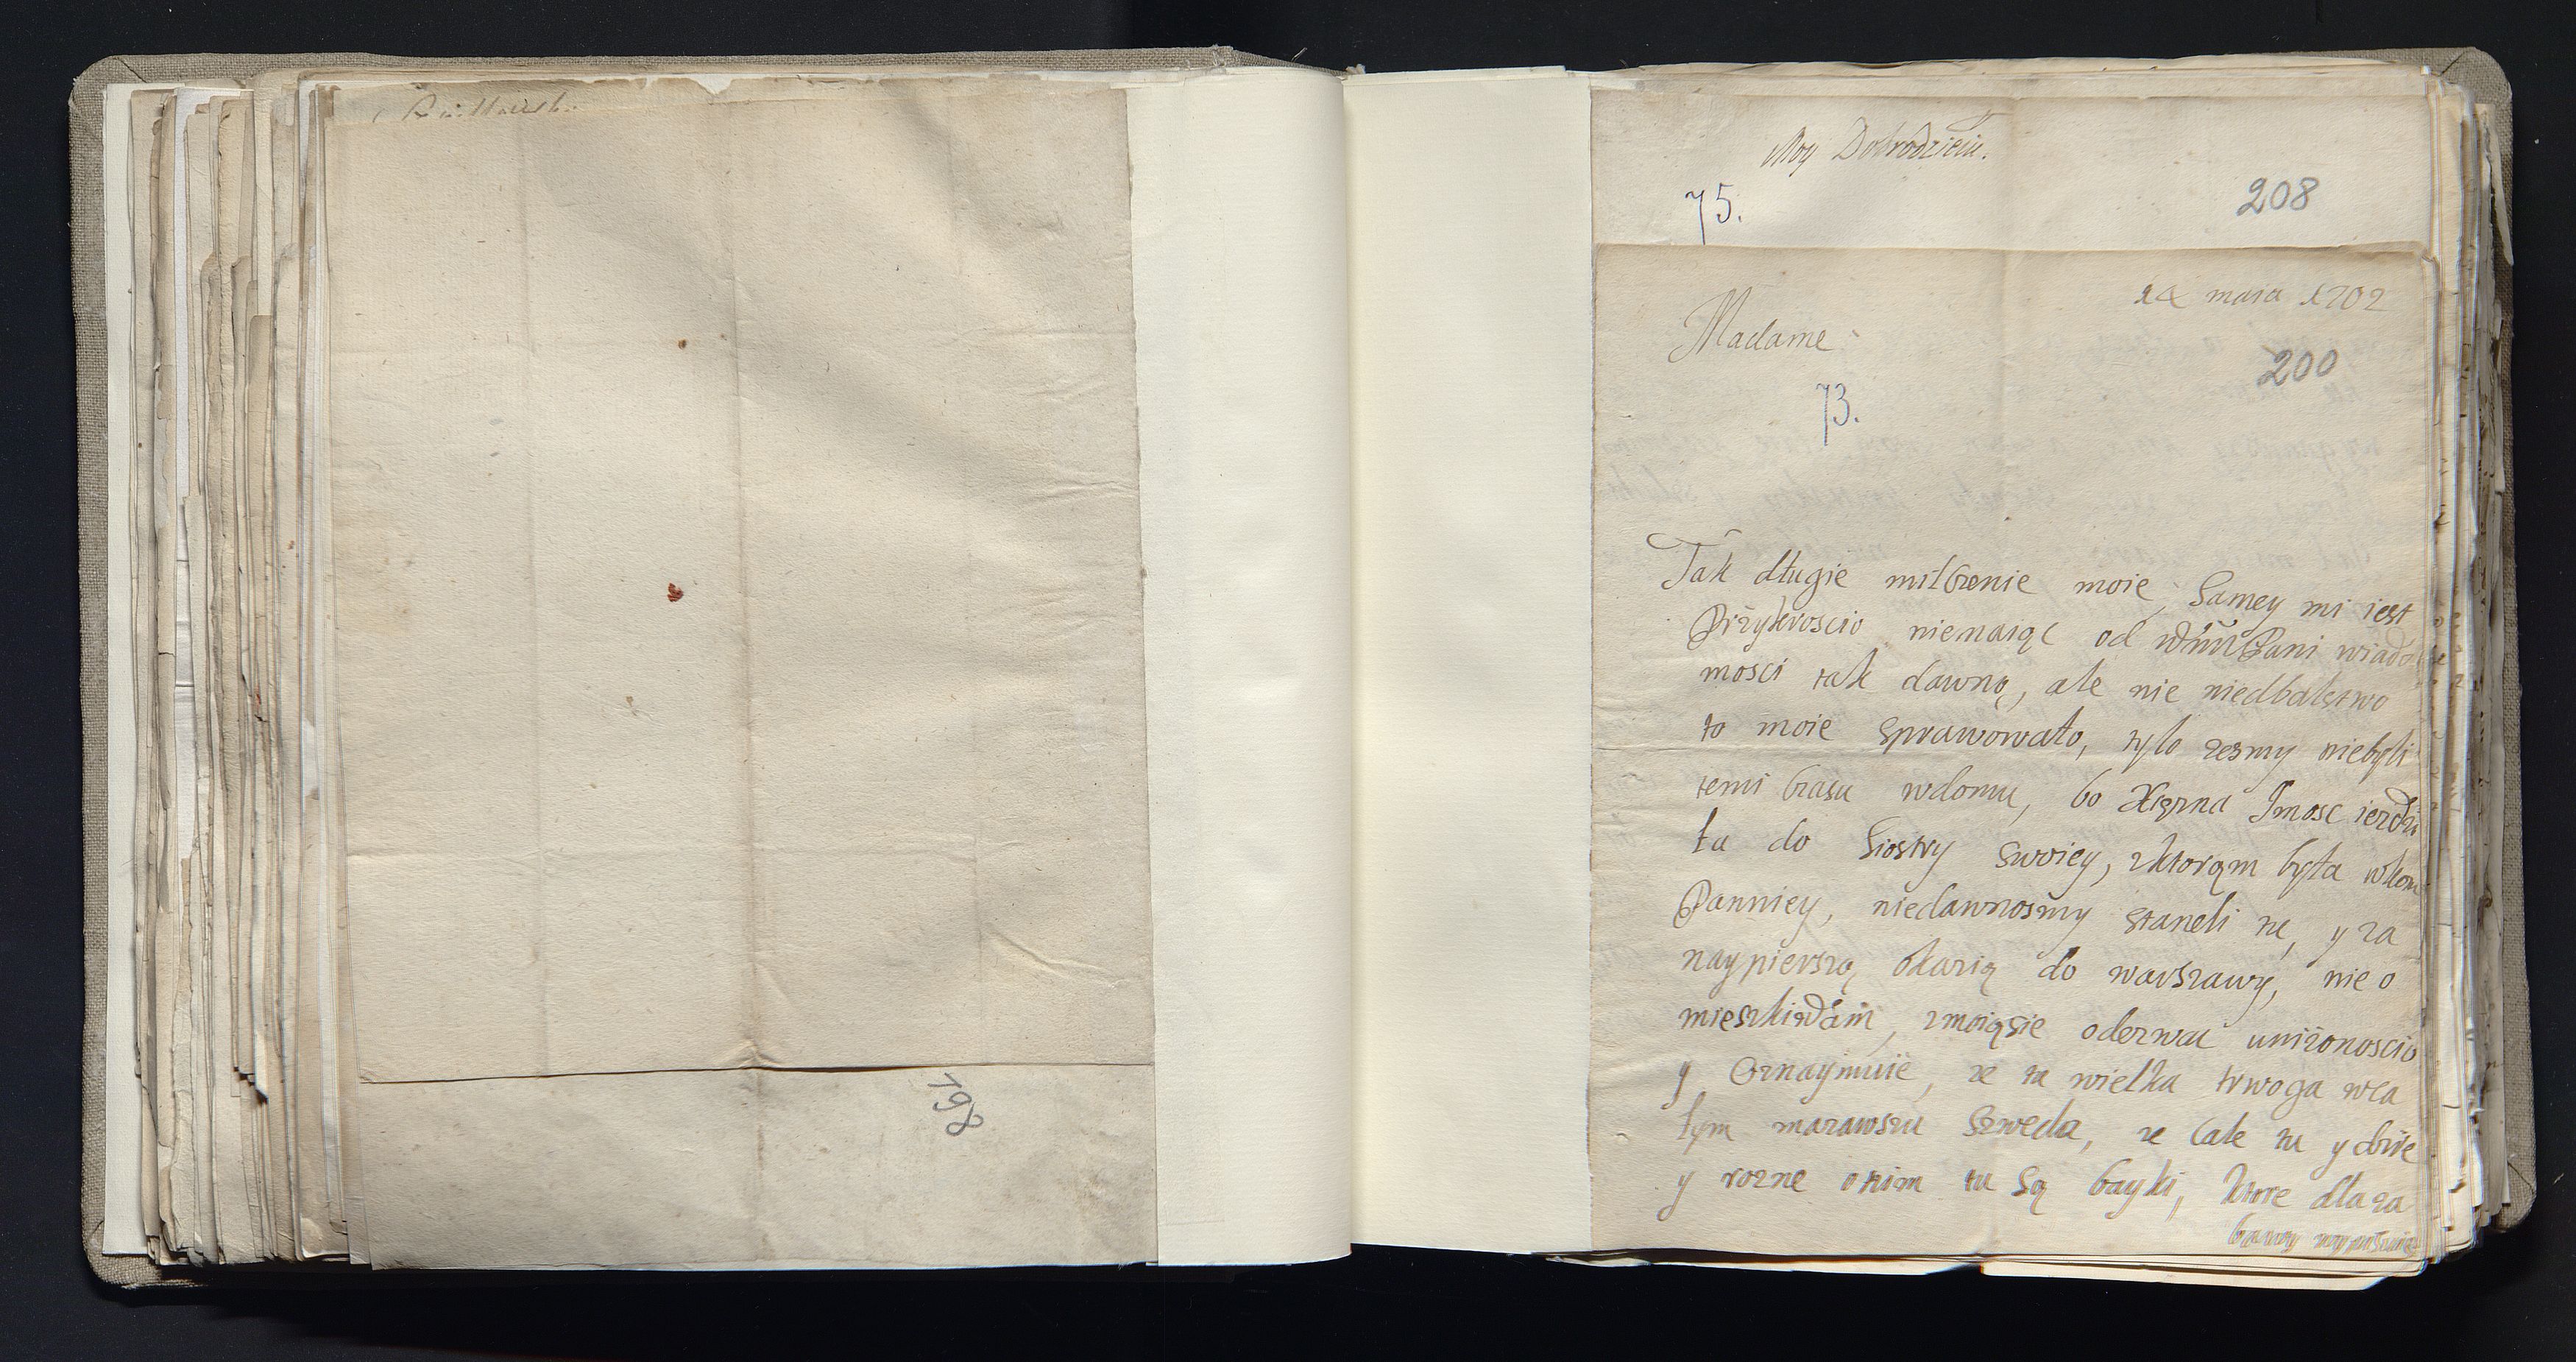 198
Moy Dobrodzieiu.
75.
208
14 maia 1702
Madame
200
73.
Tak długie milczenie moie, Samey mi iest
Przykroscio niemaiąc od WmMPani wiado
mosci tak dawno, ale nie niedbalstwo
to moie sprawowało, tylo zesmy niebyli
temi czasu wdomu, bo Xięzna Jmosc iezdzi
ła do Siostry swoiey, zktorąm była wkom
Panniey, niedawnosmy staneli tu, y za
naypierszą okazią do warszawy, nie o
mieszkiwam, zmoiąsie odezwac unizonoscio
y Oznaymuie, ze tu wielka trwoga wca
łym mazawszu Szweda, ze cale tu y dzie
y rozne onim tu są bayki, ktore dla za
bawy wypisuię